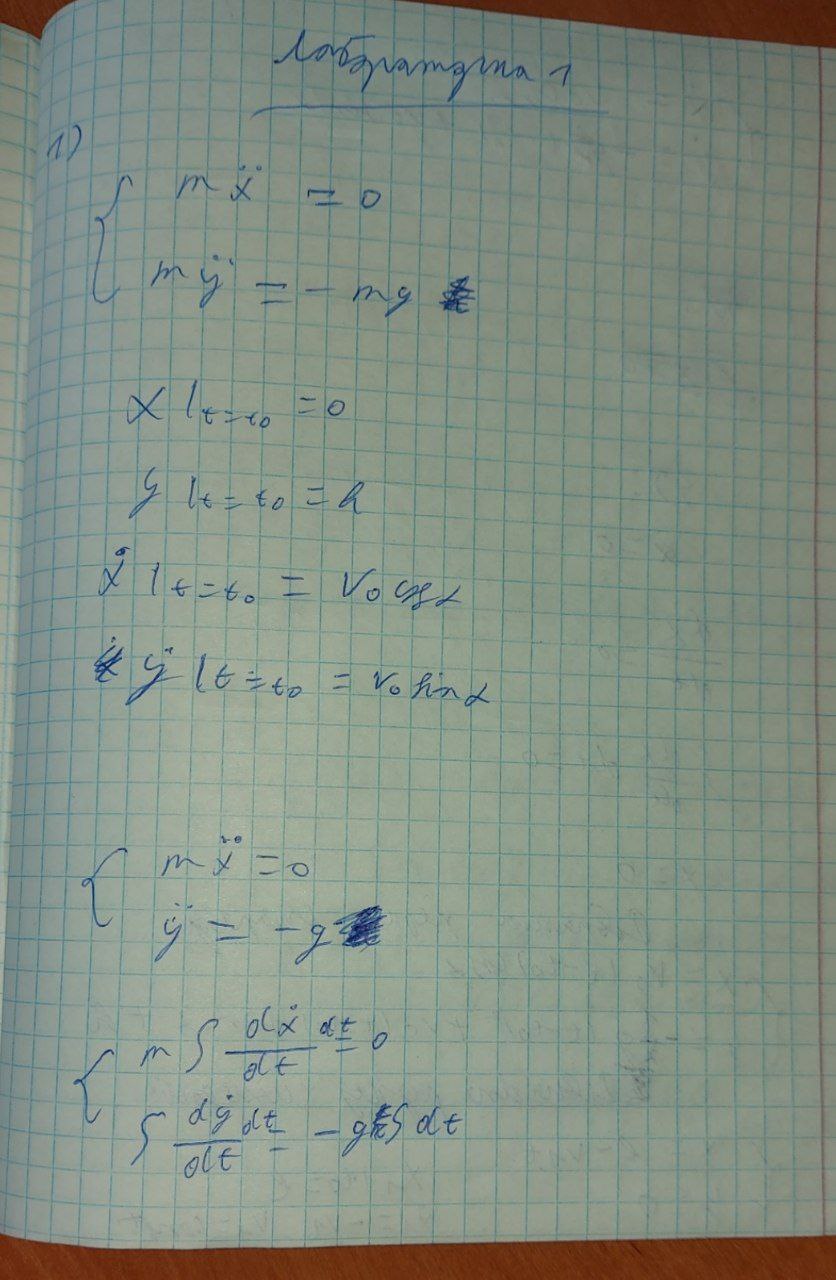 Лабораторна 1
1)
{ mẍ = 0
mÿ = - mg
x|t=t₀ = 0
y|t=t₀ = h
ẋ|t=t₀ = v₀ cosα
ẏ|t=t₀ = v₀ sinα
{ mẍ = 0
ÿ = -g
{ m ∫ dẋ/dt dt = 0
∫ dẏ/dt dt = -g ∫ dt